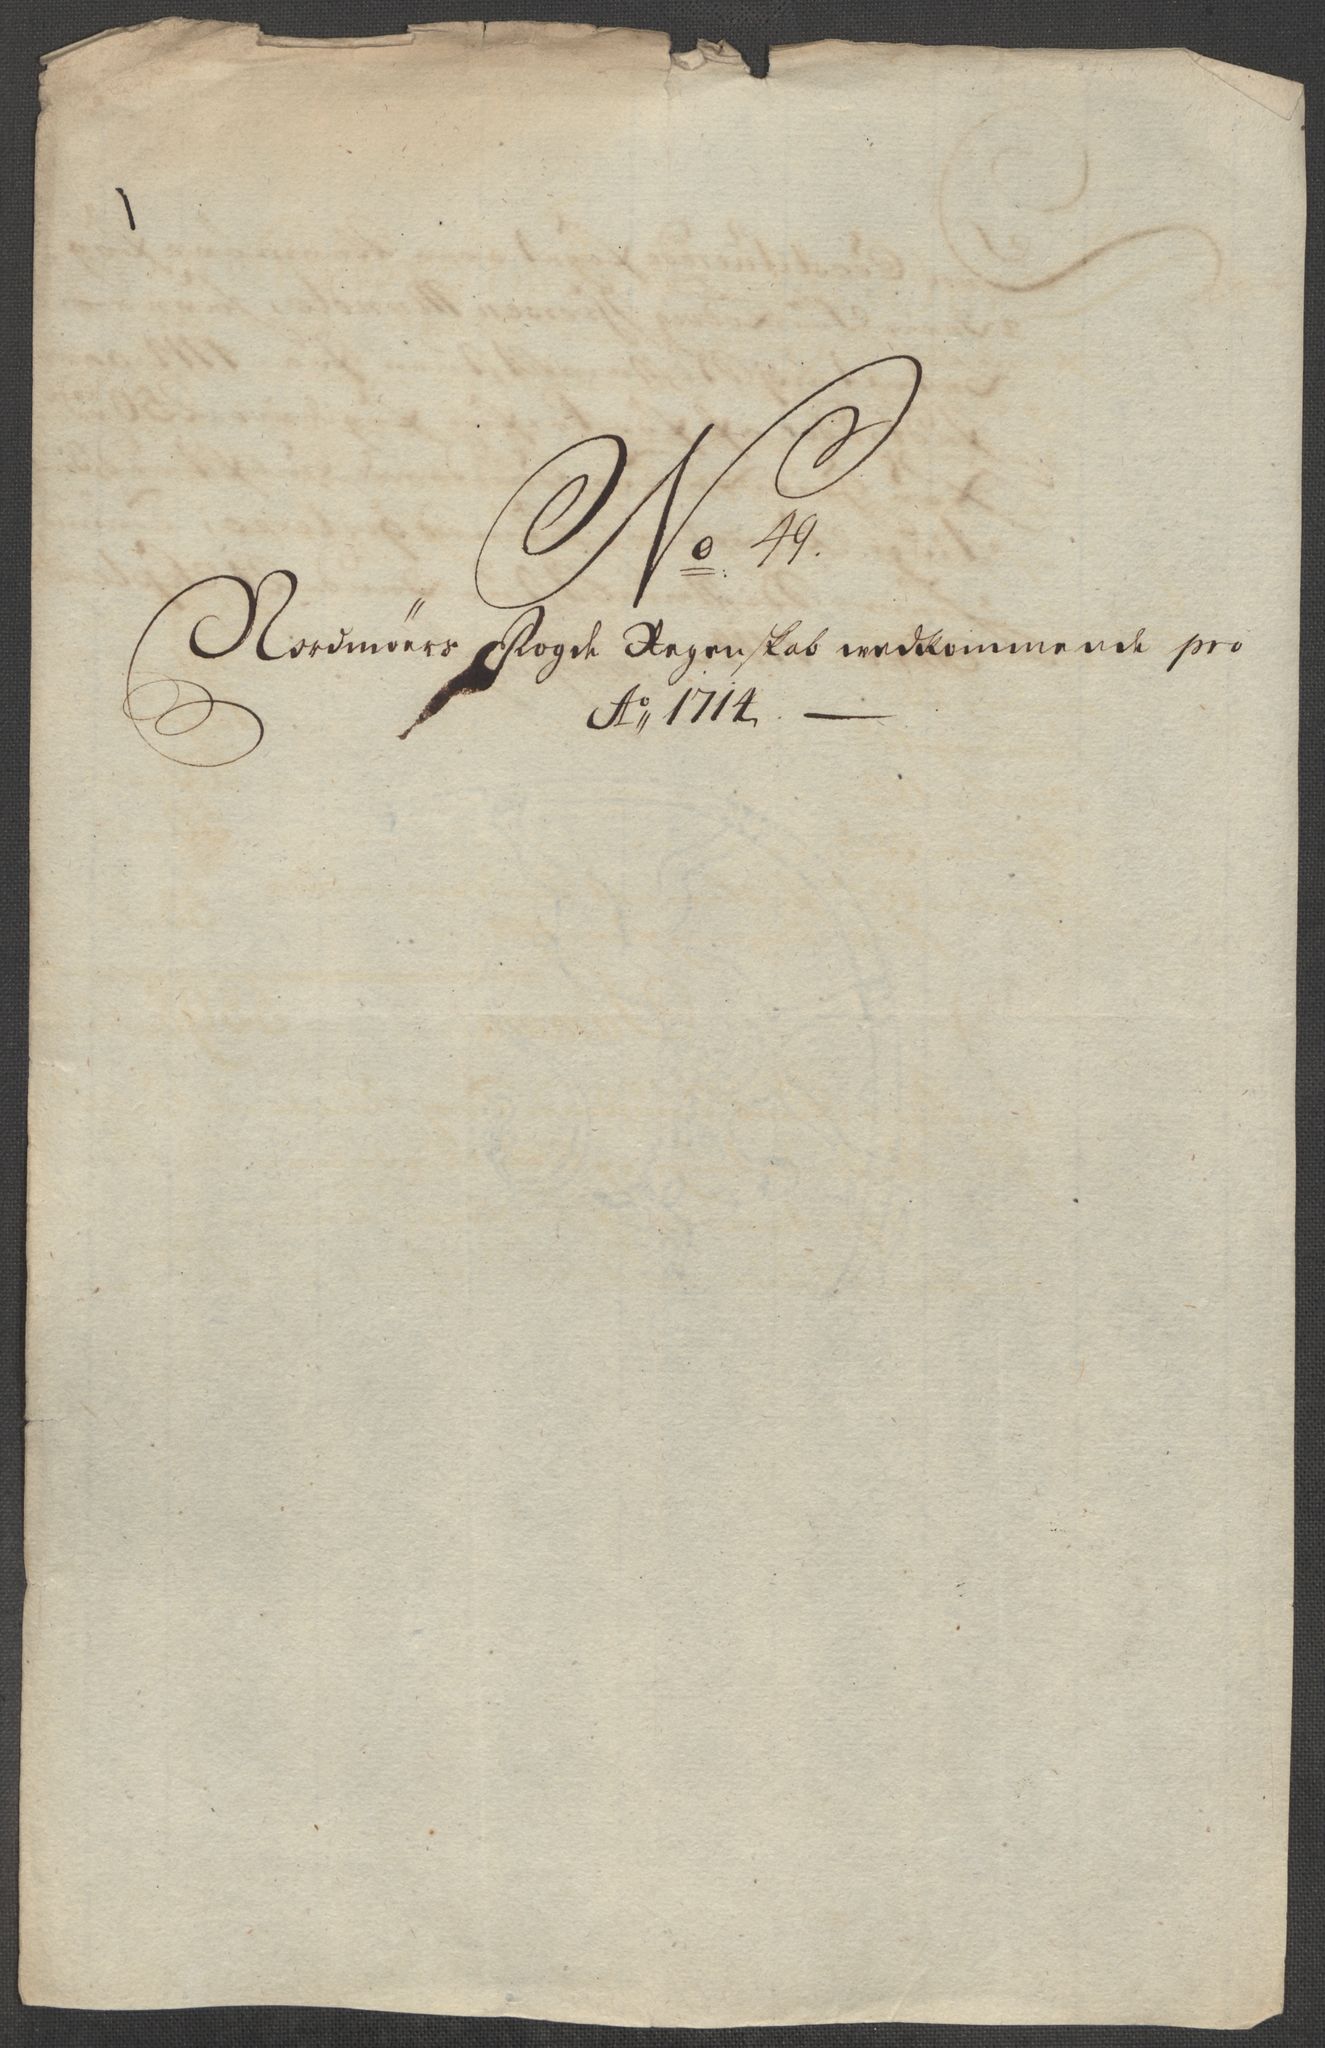 No 49.
Nordmöers Fogde Regenskab wedkommende pro
Ao 1714